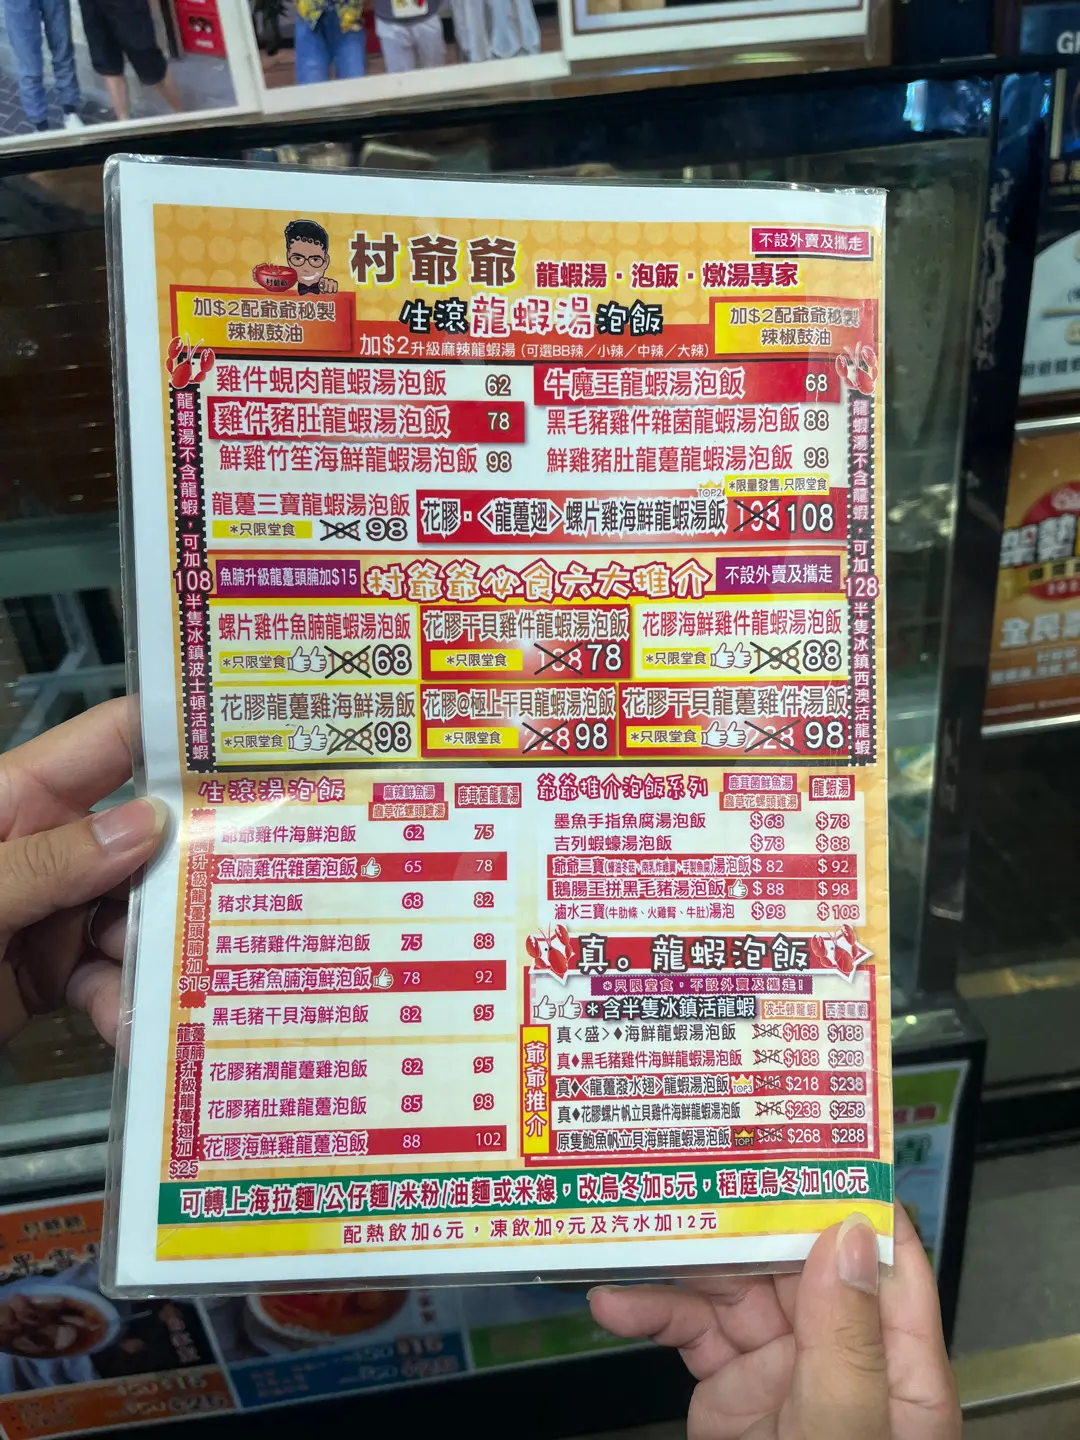 不設外賣及攜走
村爺爺
龍蝦湯・泡飯・燉湯專家
加$2配爺爺秘製
辣椒鼓油
生滾龍蝦湯泡飯
加$2配爺爺秘製
辣椒鼓油
加$2升級麻辣龍蝦湯 (可選BB辣/小辣/中辣/大辣)
龍蝦湯不含龍蝦，可加108半隻冰鎮波士頓活龍蝦
龍蝦湯不含龍蝦，可加128半隻冰鎮西澳活龍蝦
雞件蜆肉龍蝦湯泡飯 62
牛魔王龍蝦湯泡飯 68
雞件豬肚龍蝦湯泡飯 78
黑毛豬雞件雜菌龍蝦湯泡飯 88
鮮雞竹笙海鮮龍蝦湯泡飯 98
鮮雞豬肚龍躉龍蝦湯泡飯 98
龍躉三寶龍蝦湯泡飯
*只限堂食 98
TOP2 *限量發售,只限堂食
花膠・<龍躉翅>螺片雞海鮮龍蝦湯飯 198 108
魚腩升級龍躉頭腩加$15
村爺爺必食六大推介
不設外賣及攜走
螺片雞件魚腩龍蝦湯泡飯
*只限堂食 68
花膠干貝雞件龍蝦湯泡飯
*只限堂食 78
花膠海鮮雞件龍蝦湯泡飯
*只限堂食 88
花膠龍躉雞海鮮湯飯
*只限堂食 228 98
花膠@極上干貝龍蝦湯泡飯
*只限堂食 228 98
花膠干貝龍躉雞件湯飯
*只限堂食 228 98
生滾湯泡飯
麻辣鮮魚湯
蟲草花螺頭雞湯
鹿茸菌龍躉湯
升級龍躉頭腩加$15
爺爺雞件海鮮泡飯 62 75
魚腩雞件雜菌泡飯 65 78
豬求其泡飯 68 82
黑毛豬雞件海鮮泡飯 75 88
黑毛豬魚腩海鮮泡飯 78 92
黑毛豬干貝海鮮泡飯 82 95
龍躉頭腩升級龍躉翅加$25
花膠豬潤龍躉雞泡飯 82 95
花膠豬肚雞龍躉泡飯 85 98
花膠海鮮雞龍躉泡飯 88 102
爺爺推介泡飯系列
鹿茸菌鮮魚湯
蟲草花螺頭雞湯
龍蝦湯
墨魚手指魚腐湯泡飯 $68 $78
吉列蝦蠔湯泡飯 $78 $88
爺爺三寶(蠔油冬菇、南乳炸雞翼、手製魚腐)湯泡飯 $82 $92
鵝腸王拼黑毛豬湯泡飯 $88 $98
滷水三寶(牛肋條、火雞腎、牛肚)湯泡 $98 $108
真。龍蝦泡飯
*只限堂食，不設外賣及攜走!
*含半隻冰鎮活龍蝦
波士頓龍蝦 西澳龍蝦
爺爺推介
真<盛>♦海鮮龍蝦湯泡飯 $336 $168 $188
真♦黑毛豬雞件海鮮龍蝦湯泡飯 $376 $188 $208
真♦<龍躉潑水翅>龍蝦湯泡飯 TOP3 $218 $238
真♦花膠螺片帆立貝雞件海鮮龍蝦湯泡飯 $476 $238 $258
原隻鮑魚帆立貝海鮮龍蝦湯泡飯 TOP1 $268 $288
可轉上海拉麵/公仔麵/米粉/油麵或米線，改烏冬加5元，稻庭烏冬加10元
配熱飲加6元，凍飲加9元及汽水加12元